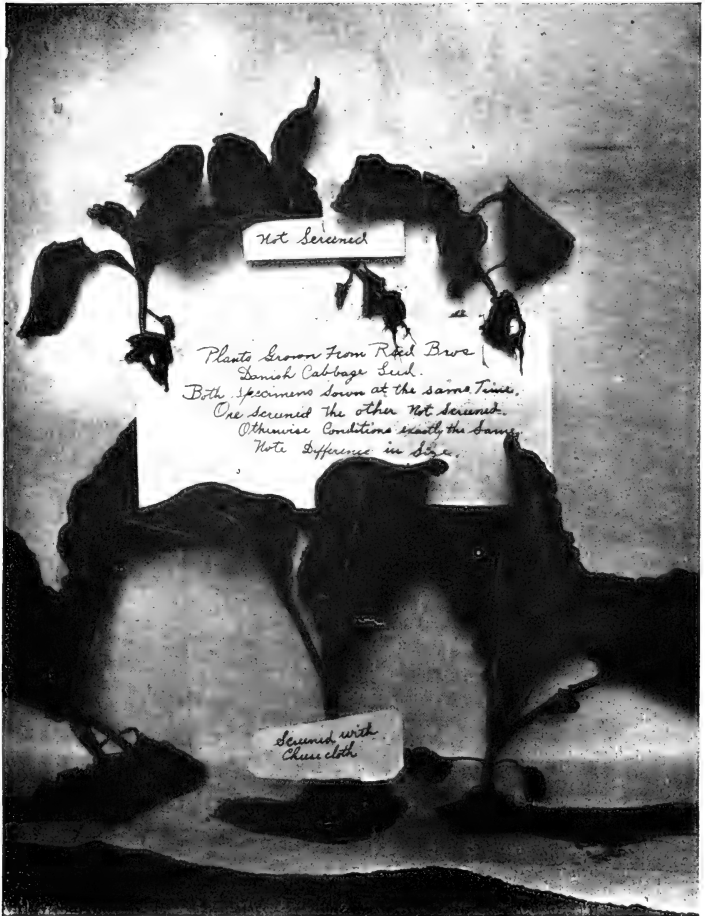 Not Screened
Plants Grown From Reed Bros
Danish Cabbage Seed.
Both specimens sown at the same Time.
One screened the other Not Screened.
Otherwise Conditions exactly the Same
Note Difference in Size.
Screened with
Cheese cloth